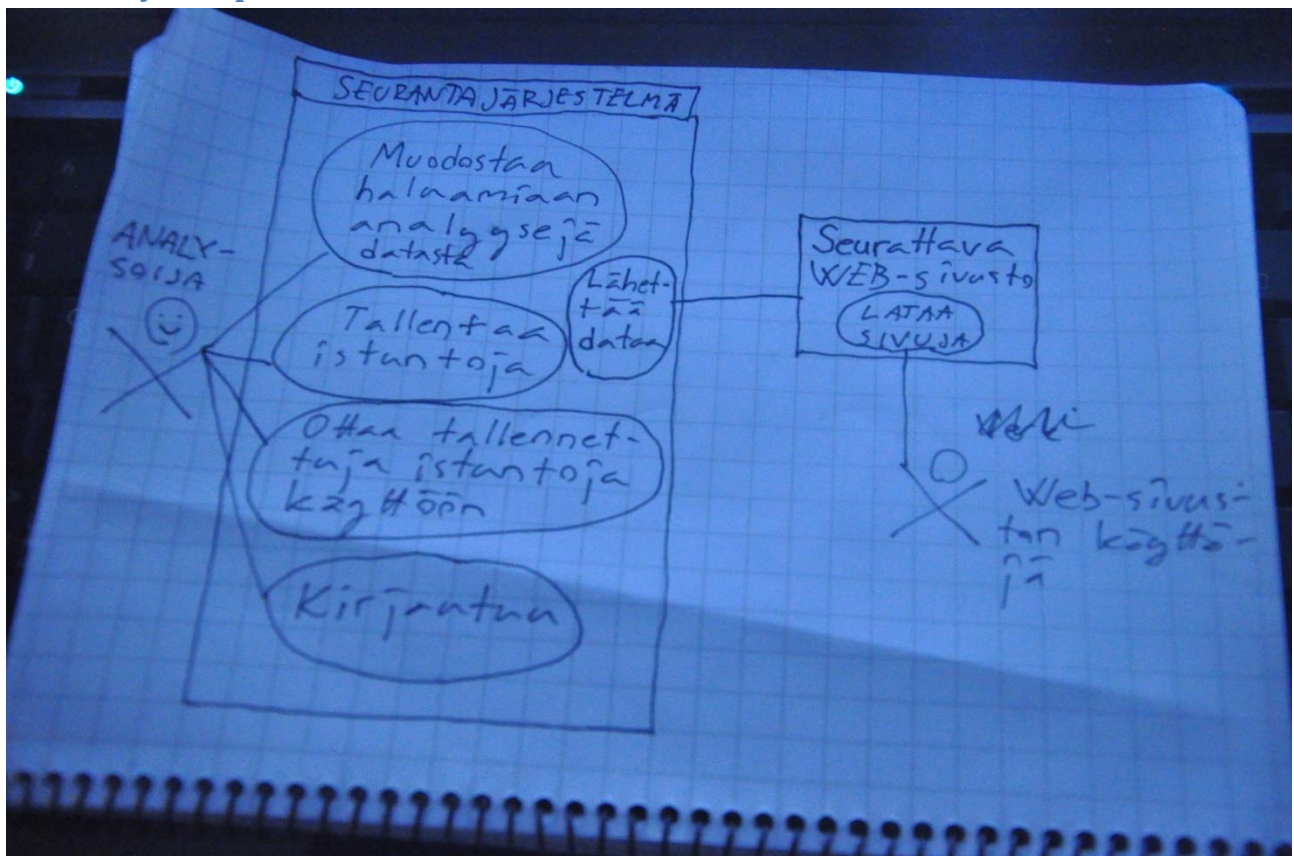 SEURANTAJÄRJESTELMÄ
Muodostaa
haluamiaan
analyysejä
datasta
ANALY-
SOIJA
Tallentaa
istuntoja
Lähet-
tää
dataa
Ottaa tallennet-
tuja istuntoja
käyttöön
Kirjautuu
Seurattava
WEB-sivusto
LATAA
SIVUJA
Web-sivus-
ton käyttä-
jä